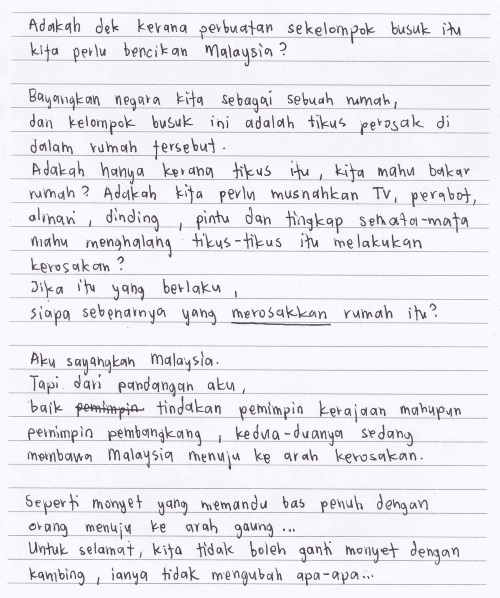 Adakah dek kerana perbuatan sekelompok busuk itu
kita perlu bencikan Malaysia?
Bayangkan negara kita sebagai sebuah rumah,
dan kelompok busuk ini adalah tikus perosak di
dalam rumah tersebut.
Adakah hanya kerana tikus itu, kita mahu bakar
rumah? Adakah kita perlu musnahkan TV, perabot,
almari, dinding, pintu dan tingkap semata-mata
mahu menghalang tikus-tikus itu melakukan
kerosakan?
Jika itu yang berlaku,
siapa sebenarnya yang merosakkan rumah itu?
Aku sayangkan Malaysia.
Tapi dari pandangan aku,
baik pemimpin tindakan pemimpin kerajaan mahupun
pemimpin pembangkang, kedua-duanya sedang
membawa Malaysia menuju ke arah kerosakan.
Seperti monyet yang memandu bas penuh dengan
orang menuju ke arah gaung...
Untuk selamat, kita tidak boleh ganti monyet dengan
kambing, ianya tidak mengubah apa-apa...